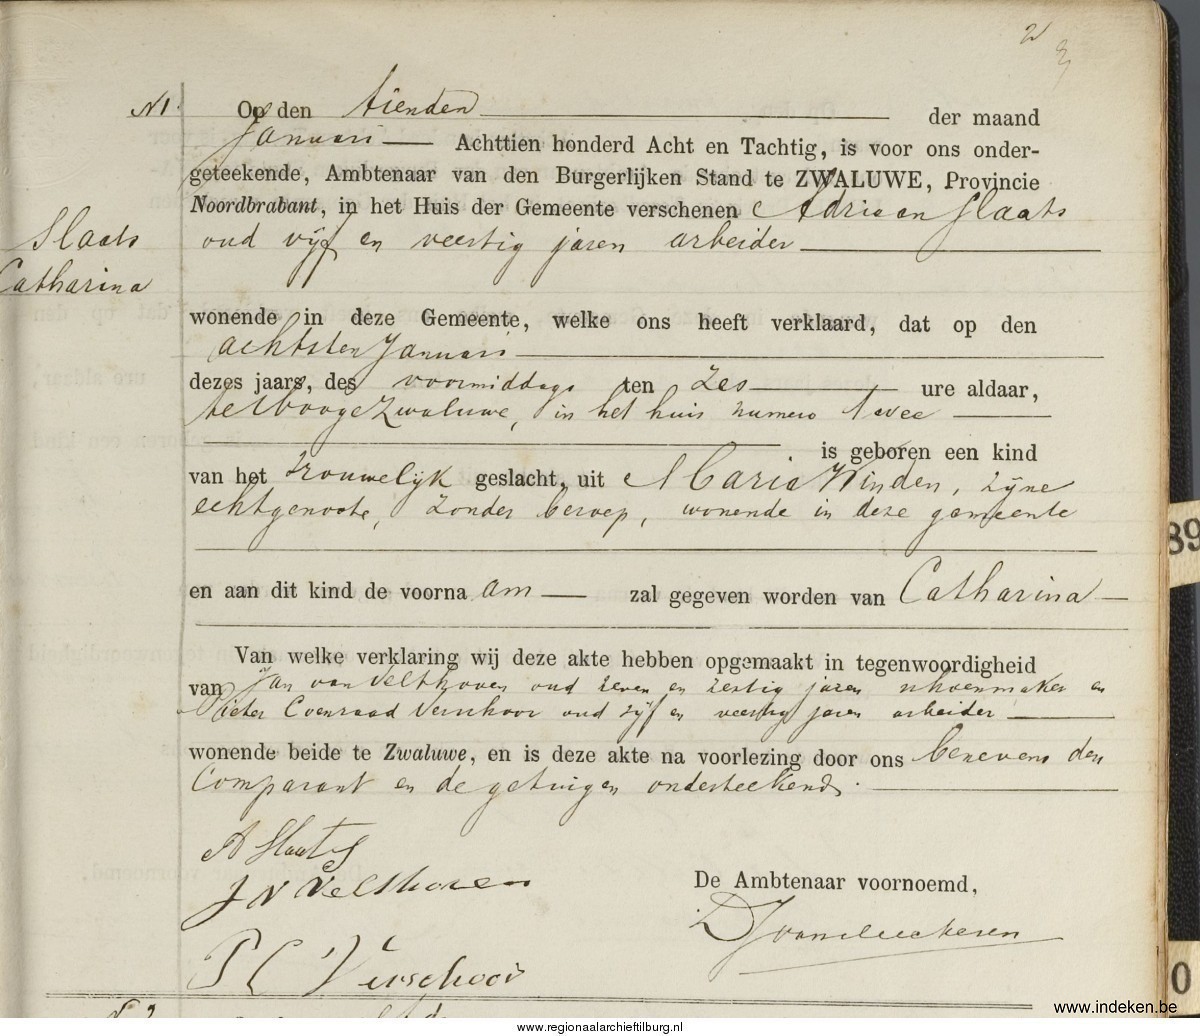 2
3
N 1. Op den tienden der maand
Januari Achttien honderd Acht en Tachtig, is voor ons onder-
geteekende, Ambtenaar van den Burgerlijken Stand te ZWALUWE, Provincie
Noordbrabant, in het Huis der Gemeente verschenen Adriaan Slaats
Slaats
Catharina
oud vijf en veertig jaren arbeider
wonende in deze Gemeente, welke ons heeft verklaard, dat op den
achtsten Januari
dezes jaars, des voormiddags ten zes ure aldaar,
te Hooge Zwaluwe, in het huis numero twee
is geboren een kind
van het vrouwelijk geslacht, uit Maria Winden, zijne
echtgenoote, zonder beroep, wonende in deze gemeente
en aan dit kind de voorna am zal gegeven worden van Catharina
Van welke verklaring wij deze akte hebben opgemaakt in tegenwoordigheid
van Jan van Velthoven oud zeven en zestig jaren schoenmaker en
Pieter Coenraad Verschoor oud vijf en veertig jaren arbeider
wonende beide te Zwaluwe, en is deze akte na voorlezing door ons benevens den
Comparant en de getuigen onderteekend.
A Slaats
J v Velthoven
De Ambtenaar voornoemd,
P C Verschoor
89
0
N 2
www.indeken.be
www.regionaalarchieftilburg.nl